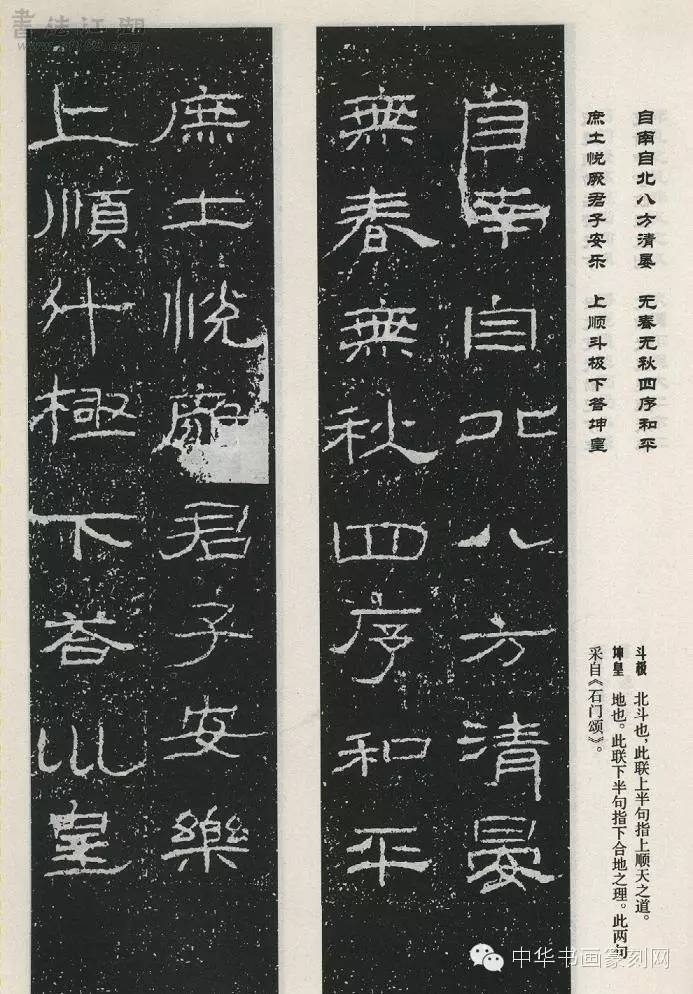 自南自北八方清晏
無春無秋四序和平
庶士悅厥君子安樂
上順什極下荅巛皇
自南自北八方清晏 无春无秋四序和平
庶士悦厥君子安乐 上顺斗极下答坤皇
斗极 北斗也,此联上半句指上顺天之道。
坤皇 地也。此联下半句指下合地之理。此两句
采自《石门颂》。
書法江湖
中华书画篆刻网